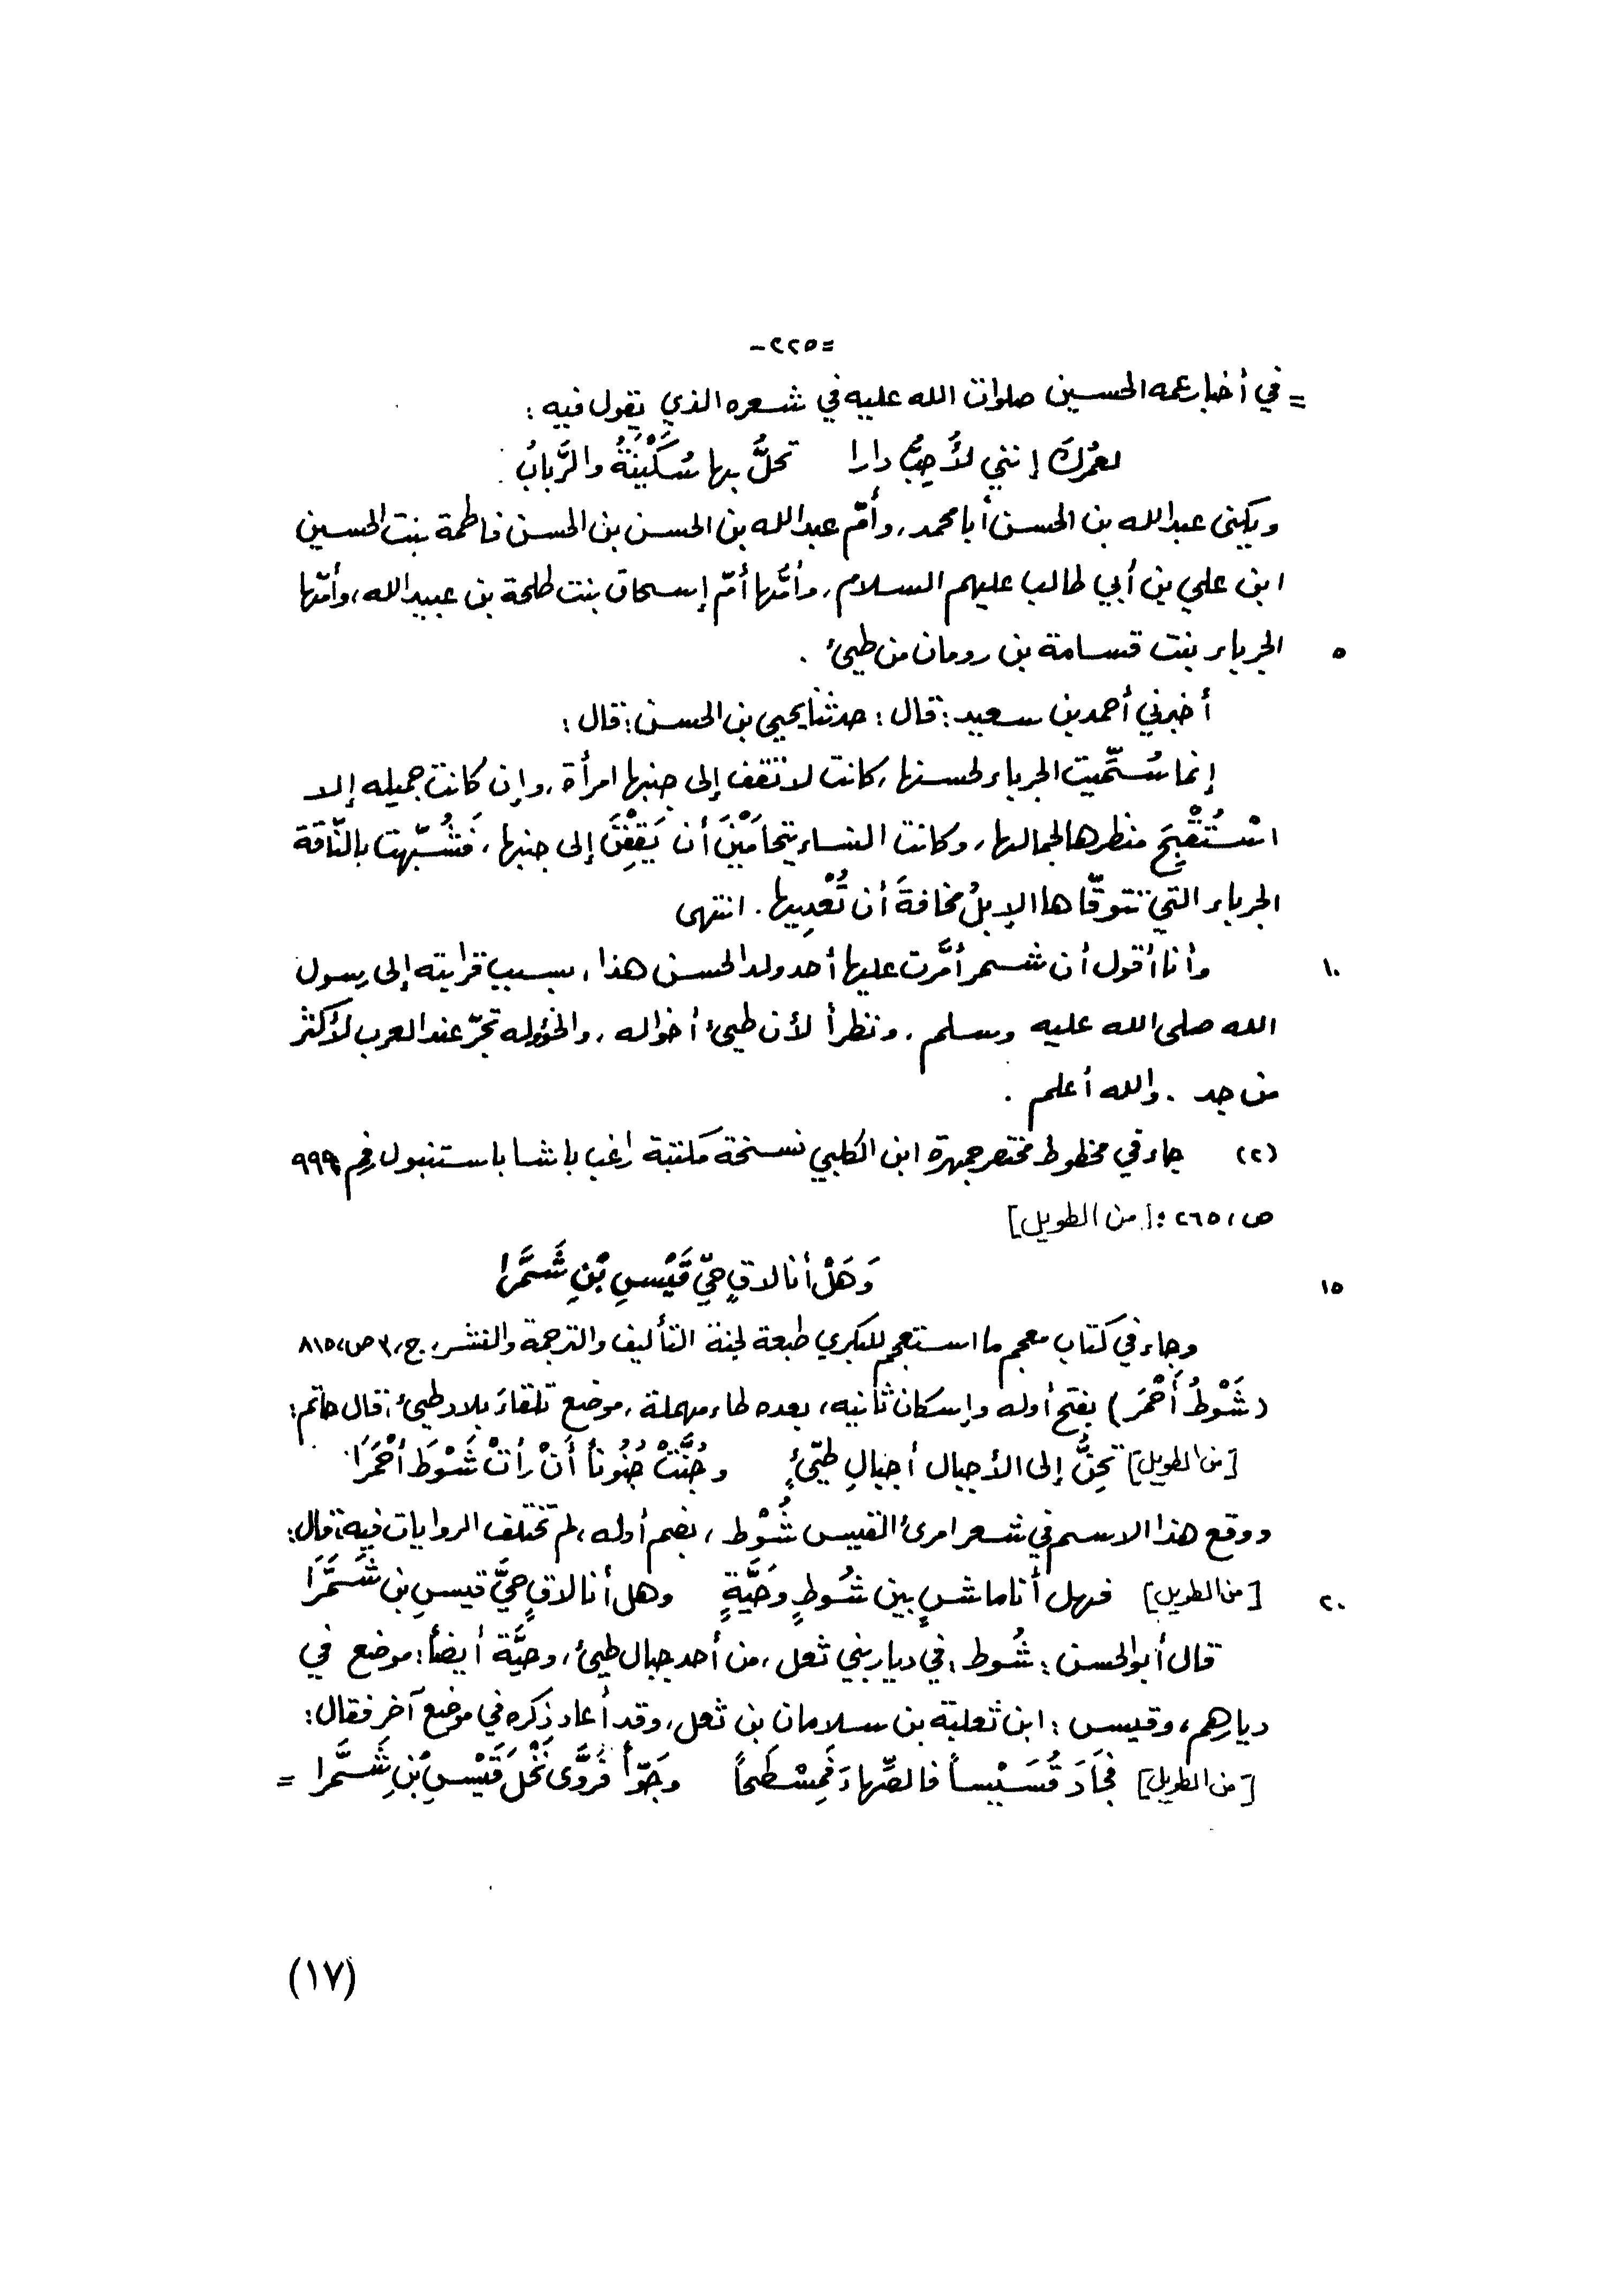 =٢٢٥-
= في أخبار عمه الحسين صلوات الله عليه في شعره الذي يقول فيه :
لعمرُكَ إنني لأُحِبُّ دارا تحلُّ بها سُكَيْنَةُ والرَّبابُ
ويكنى عبدالله بن الحسن أبا محمد، وأمّ عبدالله بن الحسن بن الحسن فاطمة بنت الحسين
ابن علي بن أبي طالب عليهم السلام، وأمُّها أمّ إسحاق بنت طلحة بن عبيدالله، وأمّها
٥ الجرباء بنت قسامة بن رومان من طيئ .
أخبرني أحمد بن سعيد : قال : حدثنا يحيى بن الحسن : قال :
إنما سُمِّيت الجرباء لحسنها، كانت لا تقف إلى جنبها امرأة، وإن كانت جميله إلا
اسْتُقْبِحَ منظرها لجمالها، وكانت النساء يتحامَيْنَ أن يَقِفْنَ إلى جنبها، فَشُبّهت بالنّاقة
الجرباء التي تتوقّاها الإبلُ مخافةَ أن تُعْدِيها. انتهى
١٠ وأنا أقول أن شمر أمَّرت عليها أحد ولد الحسن هذا، بسبب قرابته إلى رسول
الله صلى الله عليه وسلم . ونظراً لأن طيئ أخواله، والخؤوله تجرّ عند العرب لأكثر
من جد . والله أعلم .
(٢) جاء في مخطوط مختصر جمهرة ابن الكلبي نسخة مكتبة راغب باشا باستنبول رقم ٩٩٩
ص، ٢٦٥ : [من الطويل]
١٥ وَهَلْ أنا لاقٍ حيّ قَيْسِ بْنِ شَمَّرا
وجاء في كتاب معجم ما استعجم للبكري طبعة لجنة التأليف والترجمة والنشر، ج، ٣ ص، ٨١٥
(شَوْطُ أَحْمَر) بفتح أوله وإسكان ثانيه، بعده طاء مهملة، موضع تلقاءَ بلاد طيئ، قال حاتم:
[من الطويل] تحِنُّ إلى الأجبال أجبالِ طيّئٍ وجُنَّتْ جُنُوناً أَنْ رأتْ شَوْطَ أحْمَرَا
ووقع هذا الاسم في شعر امرئ القيس شُوْط، بضم أوله، لم تختلف الروايات فيه، قال:
٢٠ [من الطويل] فهل أنا ماشٍ بين شُوطٍ وحَيَّةٍ وهل أنا لاقٍ حيَّ قيسِ بن شَمَّرَا
قال أبوالحسن : شُوط : في ديار بني ثعل، من أحد جبال طيئ، وحيَّة أيضاً : موضع في
ديارهم، وقيس : ابن ثعلبة بن سلامان بن ثعل، وقد أعاد ذكره في موضع آخر فقال :
[من الطويل] فجَادَ قُسَيْساً فالصِّهاءَ فَمِسْطَحاً وجَوّاً فَرَوَّى نَخْلَ قَيْسِ بْنِ شَمَّرا =
(١٧)